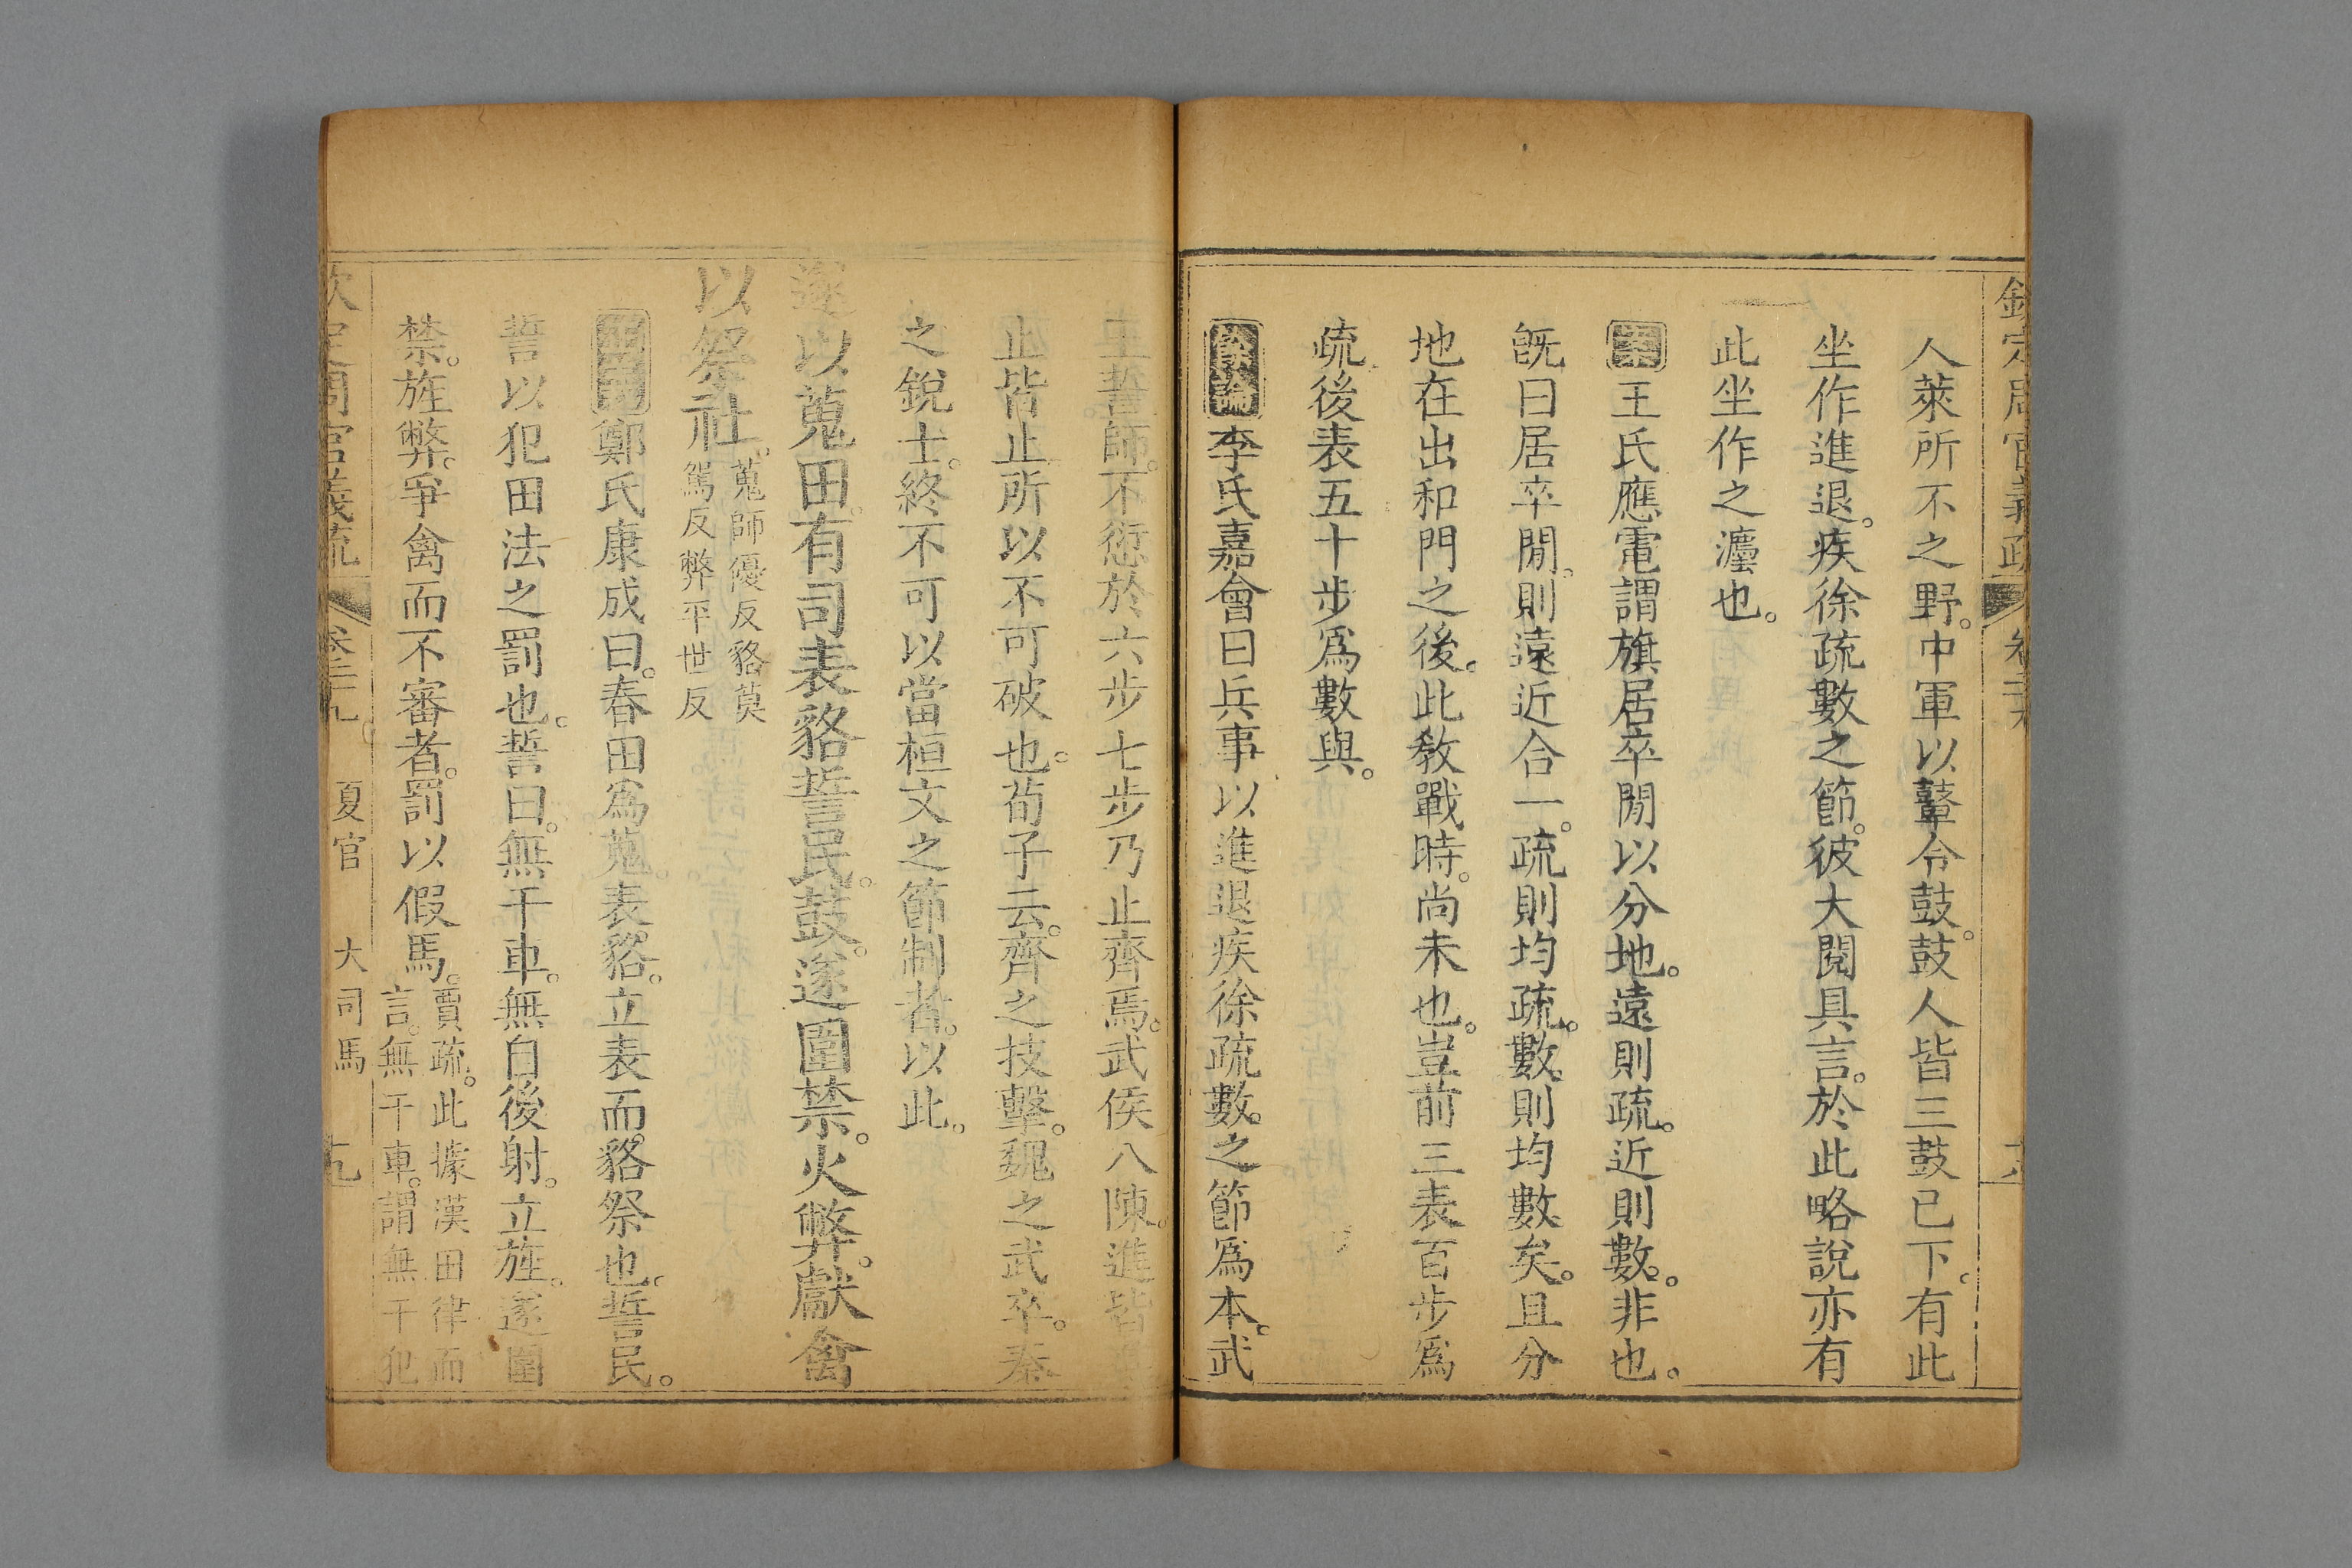 欽定周官義疏 卷二十九 十八
人萊所不之野。中軍以鼙令鼓。鼓人皆三鼓已下。有此
坐作進退。疾徐疏數之節。彼大閱具言。於此略說亦有
此坐作之灋也。
案王氏應電謂旗居卒閒以分地。遠則疏。近則數。非也。
旣曰居卒閒。則遠近合一。疏則均疏。數則均數矣。且分
地在出和門之後。此敎戰時。尚未也。豈前三表百步爲
疏。後表五十步爲數與。
餘論李氏嘉會曰兵事以進退疾徐疏數之節爲本。武
王誓師。不愆於六步七步乃止齊焉。武侯八陳。進皆
止皆止。所以不可破也。荀子云。齊之技擊。魏之武卒。秦
之銳士。終不可以當桓文之節制者。以此。
遂以蒐田。有司表貉誓民。鼓。遂圍禁。火弊。獻禽
以祭社。蒐師優反貉莫
駕反弊平世反
鄭氏康成曰。春田爲蒐。表貉。立表而貉祭也。誓民。
誓以犯田法之罰也。誓曰。無干車。無自後射。立旌。遂圍
禁。旌弊。爭禽而不審者。罰以假馬。賈疏。此據漢田律而
言。無干車。謂無干犯
欽定周官義疏 卷二十九 夏官 大司馬 十九